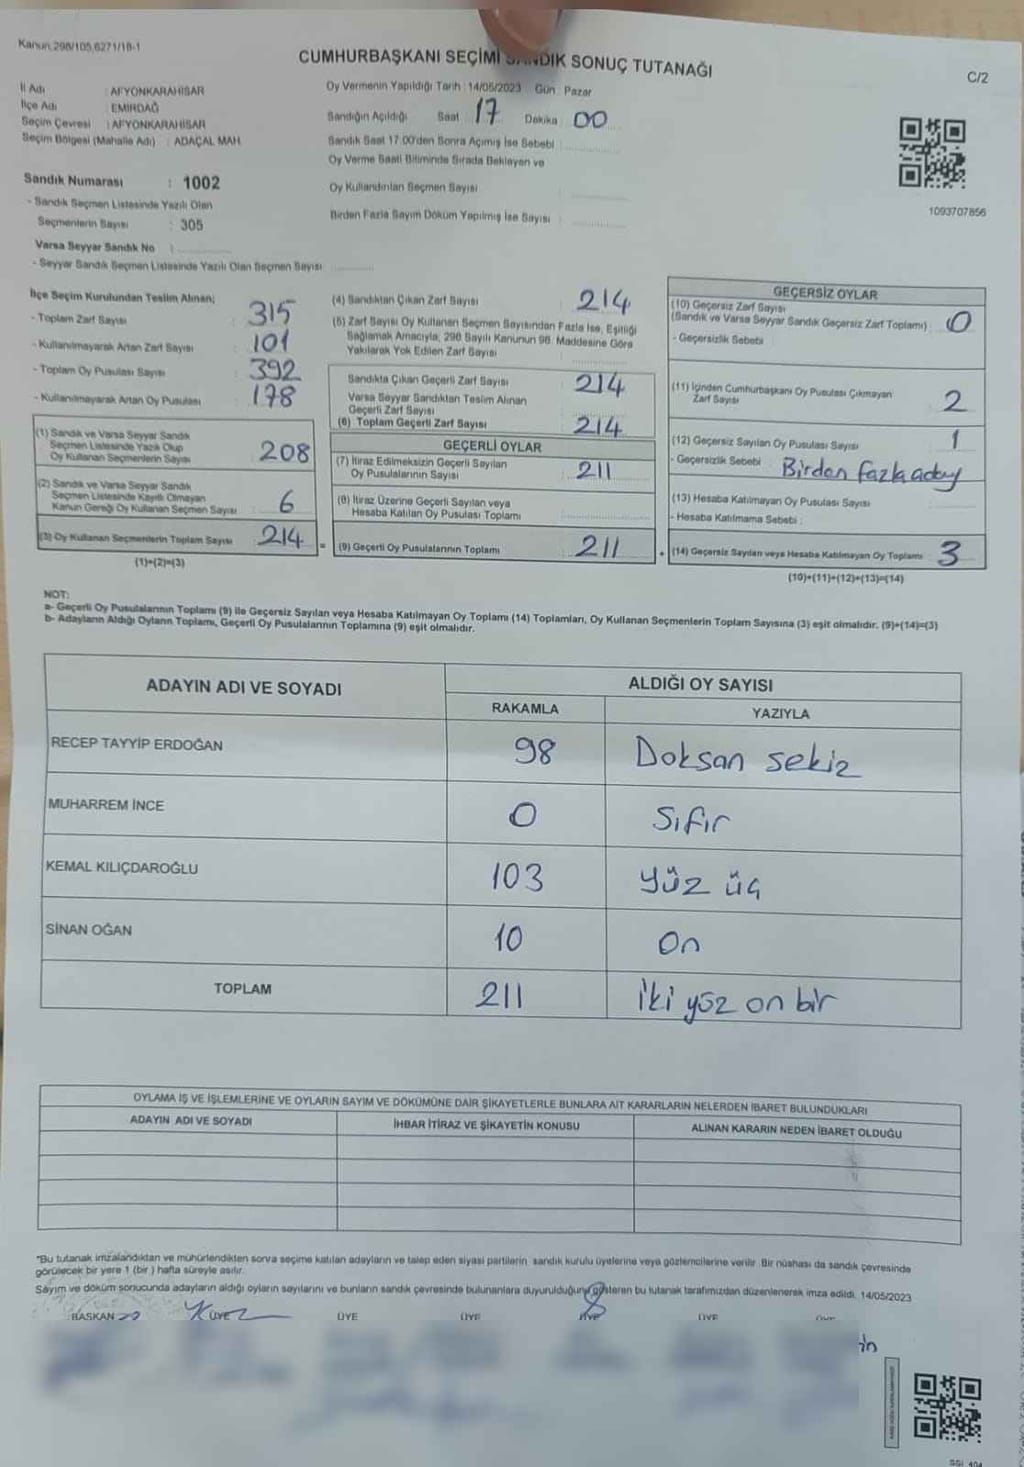 Kanun.298/105,6271/18-1
CUMHURBAŞKANI SEÇİMİ SANDIK SONUÇ TUTANAĞI
C/2
İl Adı : AFYONKARAHİSAR
İlçe Adı : EMİRDAĞ
Seçim Çevresi : AFYONKARAHİSAR
Seçim Bölgesi (Mahalle Adı) : ADAÇAL MAH
Sandık Numarası : 1002
- Sandık Seçmen Listesinde Yazılı Olan
Seçmenlerin Sayısı : 305
Varsa Seyyar Sandık No :
- Seyyar Sandık Seçmen Listesinde Yazılı Olan Seçmen Sayısı
Oy Vermenin Yapıldığı Tarih : 14/05/2023 Gün : Pazar
Sandığın Açıldığı Saat 17 Dakika 00
Sandık Saat 17.00'den Sonra Açımış İse Sebebi :
Oy Verme Saati Bitiminde Sırada Bekleyen ve
Oy Kullandırılan Seçmen Sayısı
Birden Fazla Sayım Döküm Yapılmış İse Sayısı :
1093707856
İlçe Seçim Kurulundan Teslim Alınan;
- Toplam Zarf Sayısı : 315
- Kullanılmayarak Artan Zarf Sayısı : 101
- Toplam Oy Pusulası Sayısı : 392
- Kullanılmayarak Artan Oy Pusulası : 178
(1) Sandık ve Varsa Seyyar Sandık
Seçmen Listesinde Yazılı Olup
Oy Kullanan Seçmenlerin Sayısı : 208
(2) Sandık ve Varsa Seyyar Sandık
Seçmen Listesinde Kayıtlı Olmayan
Kanun Gereği Oy Kullanan Seçmen Sayısı : 6
(3) Oy Kullanan Seçmenlerin Toplam Sayısı : 214
(1)+(2)=(3)
(4) Sandıktan Çıkan Zarf Sayısı : 214
(5) Zarf Sayısı Oy Kullanan Seçmen Sayısından Fazla İse, Eşitliği
Sağlamak Amacıyla, 298 Sayılı Kanunun 98. Maddesine Göre
Yakılarak Yok Edilen Zarf Sayısı
Sandıkta Çıkan Geçerli Zarf Sayısı : 214
Varsa Seyyar Sandıktan Teslim Alınan
Geçerli Zarf Sayısı
(6) Toplam Geçerli Zarf Sayısı : 214
GEÇERLİ OYLAR
(7) İtiraz Edilmeksizin Geçerli Sayılan
Oy Pusulalarının Sayısı : 211
(8) İtiraz Üzerine Geçerli Sayılan veya
Hesaba Katılan Oy Pusulası Toplamı
= (9) Geçerli Oy Pusulalarının Toplamı : 211
GEÇERSİZ OYLAR
(10) Geçersiz Zarf Sayısı
(Sandık ve Varsa Seyyar Sandık Geçersiz Zarf Toplamı) : 0
- Geçersizlik Sebebi :
(11) İçinden Cumhurbaşkanı Oy Pusulası Çıkmayan
Zarf Sayısı : 2
(12) Geçersiz Sayılan Oy Pusulası Sayısı : 1
- Geçersizlik Sebebi : Birden fazla aday
(13) Hesaba Katılmayan Oy Pusulası Sayısı :
- Hesaba Katılmama Sebebi :
+ (14) Geçersiz Sayılan veya Hesaba Katılmayan Oy Toplamı : 3
(10)+(11)+(12)+(13)=(14)
NOT:
a- Geçerli Oy Pusulalarının Toplamı (9) ile Geçersiz Sayılan veya Hesaba Katılmayan Oy Toplamı (14) Toplamları, Oy Kullanan Seçmenlerin Toplam Sayısına (3) eşit olmalıdır. (9)+(14)=(3)
b- Adayların Aldığı Oyların Toplamı, Geçerli Oy Pusulalarının Toplamına (9) eşit olmalıdır.
ADAYIN ADI VE SOYADI ALDIĞI OY SAYISI
RAKAMLA YAZIYLA
RECEP TAYYİP ERDOĞAN 98 Doksan sekiz
MUHARREM İNCE 0 Sıfır
KEMAL KILIÇDAROĞLU 103 yüz üç
SİNAN OĞAN 10 On
TOPLAM 211 İki yüz on bir
OYLAMA İŞ VE İŞLEMLERİNE VE OYLARIN SAYIM VE DÖKÜMÜNE DAİR ŞİKAYETLERLE BUNLARA AİT KARARLARIN NELERDEN İBARET BULUNDUKLARI
ADAYIN ADI VE SOYADI İHBAR İTİRAZ VE ŞİKAYETİN KONUSU ALINAN KARARIN NEDEN İBARET OLDUĞU
"Bu tutanak imzalandıktan ve mühürlendikten sonra seçime katılan adayların ve talep eden siyasi partilerin sandık kurulu üyelerine veya gözlemcilerine verilir. Bir nüshası da sandık çevresinde
görülecek bir yere 1 (bir ) hafta süreyle asılır.
Sayım ve döküm sonucunda adayların aldığı oyların sayılarını ve bunların sandık çevresinde bulunanlara duyurulduğunu gösteren bu tutanak tarafımızdan düzenlenerek imza edildi. 14/05/2023
BAŞKAN ÜYE ÜYE ÜYE ÜYE ÜYE